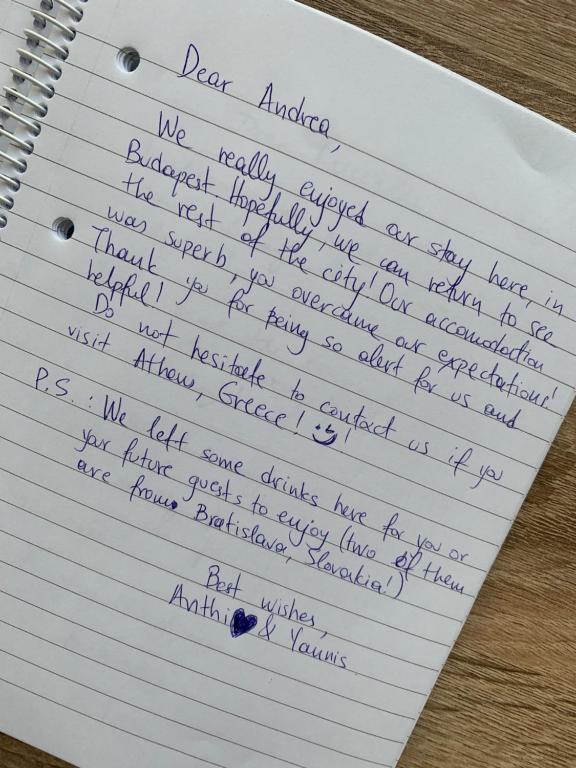 Dear Andrea,
We really enjoyed our stay here, in
Budapest. Hopefully, we can return to see
the rest of the city! Our accomodation
was superb, you overcame our expectations!
Thank you for being so alert for us and
helpful!
Do not hesitate to contact us if you
visit Athens, Greece! !
P.S.: We left some drinks here for you or
your future guests to enjoy (two of them
are from Bratislava, Slovakia!)
Best wishes,
Anthi & Yannis